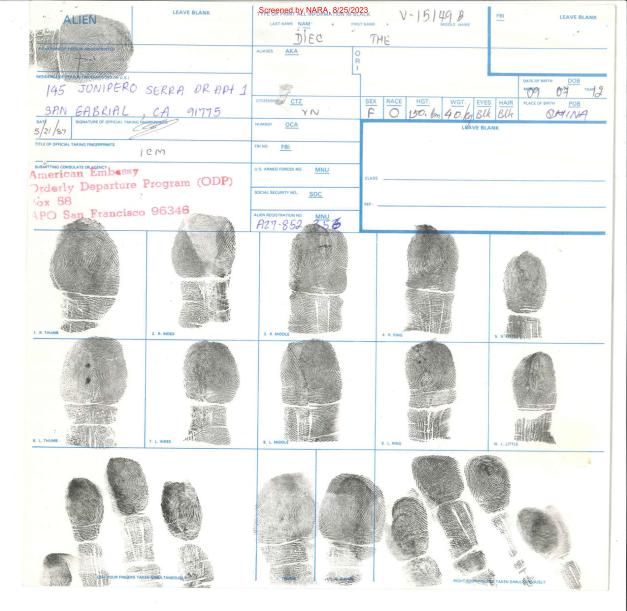 Screened by NARA, 8/25/2023
ALIEN
LEAVE BLANK
LAST NAME NAM FIRST NAME MIDDLE NAME
V-15149 B
FBI
LEAVE BLANK
DIEC THE
ALIASES AKA
O
R
I
145 JUNIPERO SERRA DR APT 1
SAN GABRIAL, CA 91775
DATE OF BIRTH DOB
09 07 12
CITIZENSHIP CTZ
VN
SEX RACE HGT. WGT. EYES HAIR
F O 150.cm 40.kg Blk Blk
PLACE OF BIRTH POB
CHINA
DATE
5/21/87
SIGNATURE OF OFFICIAL TAKING FINGERPRINTS
NUMBER OCA
LEAVE BLANK
TITLE OF OFFICIAL TAKING FINGERPRINTS
ICM
FBI NO. FBI
CLASS
REF.
SUBMITTING CONSULATE OR AGENCY
American Embassy
Orderly Departure Program (ODP)
Box 58
APO San Francisco 96346
U.S. ARMED FORCES NO. MNU
SOCIAL SECURITY NO. SOC
ALIEN REGISTRATION NO. MNU
A27-852 356
1. R. THUMB
2. R. INDEX
3. R. MIDDLE
4. R. RING
5. R. LITTLE
6. L. THUMB
7. L. INDEX
8. L. MIDDLE
9. L. RING
10. L. LITTLE
LEFT FOUR FINGERS TAKEN SIMULTANEOUSLY
RIGHT FOUR FINGERS TAKEN SIMULTANEOUSLY